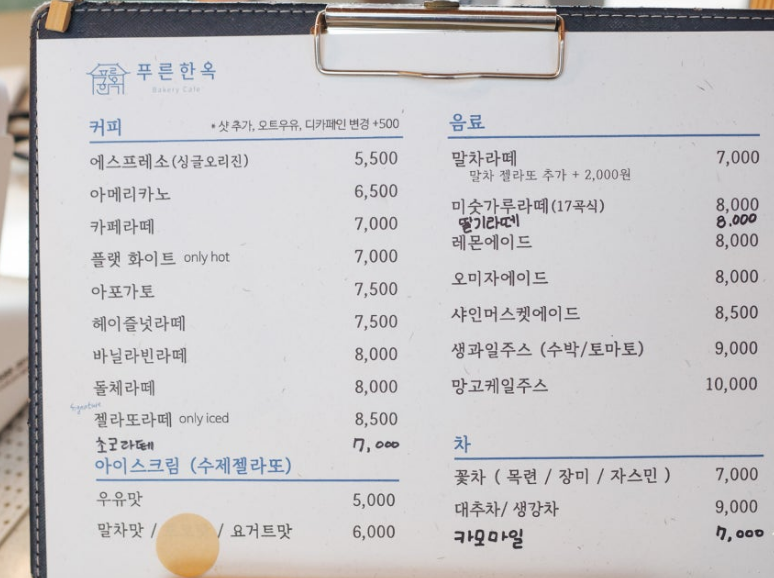 푸른한옥
Bakery Cafe
커피 * 샷 추가, 오트우유, 디카페인 변경 +500
에스프레소(싱글오리진) 5,500
아메리카노 6,500
카페라떼 7,000
플랫 화이트 only hot 7,000
아포가토 7,500
헤이즐넛라떼 7,500
바닐라빈라떼 8,000
돌체라떼 8,000
Signature
젤라또라떼 only iced 8,500
초코라떼 7,000
아이스크림 (수제젤라또)
우유맛 5,000
말차맛 / / 요거트맛 6,000
음료
말차라떼 7,000
말차 젤라또 추가 + 2,000원
미숫가루라떼(17곡식) 8,000
딸기라떼 8.000
레몬에이드 8,000
오미자에이드 8,000
샤인머스켓에이드 8,500
생과일주스 (수박/토마토) 9,000
망고케일주스 10,000
차
꽃차 ( 목련 / 장미 / 자스민 ) 7,000
대추차/ 생강차 9,000
카모마일 7,000